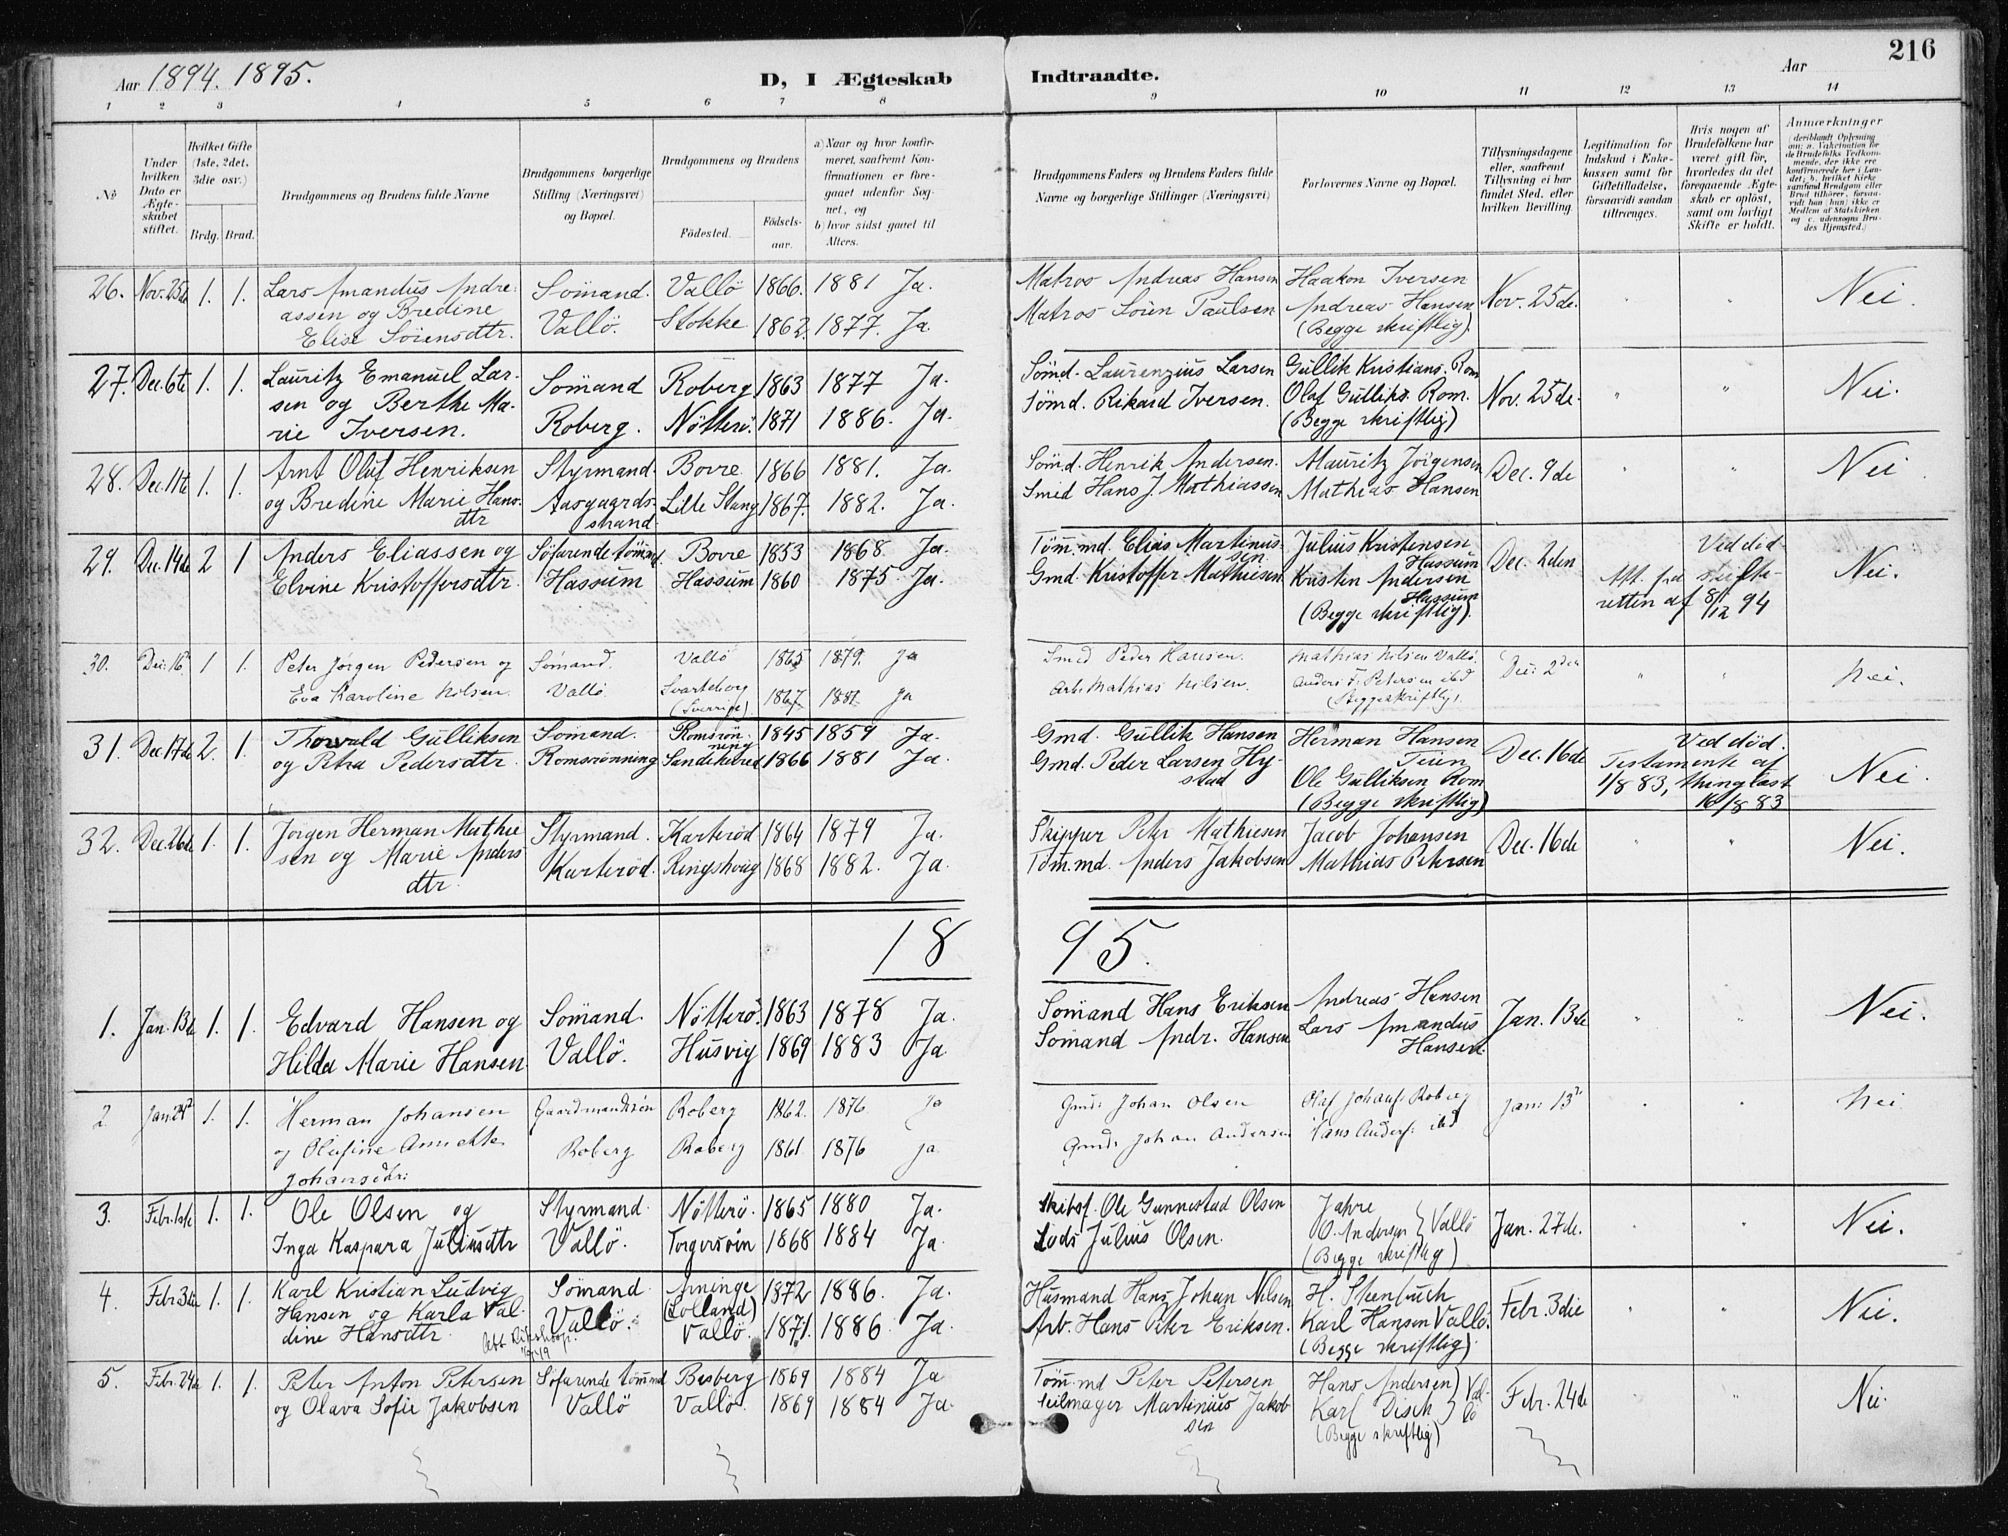 216
Aar 1894. 1895.
D, I Ægteskab Indtraadte.
Aar
1 2 3 4 5 6 7 8 9 10 11 12 13 14
No
Under hvilken Dato er Ægteskabet stiftet.
Hvilket Gifte (1ste, 2det, 3die osv.)
Brdg. Brud.
Brudgommens og Brudens fulde Navne
Brudgommens borgerlige Stilling (Næringsvei) og Bopæl.
Brudgommens og Brudens
Fødested. Fødselsaar.
a) Naar og hvor konfirmeret, saafremt Konfirmationen er foregaaet udenfor Sognet, og
b) hvor sidst gaaet til Alters.
Brudgommens Faders og Brudens Faders fulde Navne og borgerlige Stillinger (Næringsvei)
Forlovernes Navne og Bopæl.
Tillysningsdagene eller, saafremt Tillysning ei har fundet Sted, efter hvilken Bevilling.
Legitimation for Indskud i Enkekassen samt for Giftetilladelse, forsaavidt saadan tiltrænges.
Hvis nogen af Brudefolkene har været gift før, hvorledes da det foregaaende Ægteskab er opløst, samt om lovligt Skifte er holdt.
Anmærkninger
(deriblandt Oplysning om: a. Vakcination for de Brudefolks Vedkommende, der ikke ere konfirmerede her i Landet; b. hvilket Kirkesamfund Brudgom eller Brud tilhører, forsaavidt han (hun) ikke er Medlem af Statskirken og c. udensogns Brudes Hjemsted.)
26. Nov. 25de 1. 1. Lars Amandus Andre- Sömand. Vallö 1866. 1881 Ja. Matros Andreas Hansen Haakon Iversen Nov. 25de. " " Nei.
assen og Bredine Vallö. Stokke 1862. 1877. Ja Matros Sören Paulsen Andreas Hansen
Elise Sörensdtr. (Begge skriftlig)
27. Dec. 6te 1. 1. Lauritz Emanuel Lar- Sömand Roberg 1863 1877 Ja. Sömd. Laurenzius Larsen Gullik Kristians. Rom Nov. 25de. " " Nei.
sen og Berthe Ma- Roberg. Nötterö. 1871 1886. Ja. Sömd. Rikard Iversen. Olaf Gulliks. Rom.
rie Iversen. (Begge skriftlig)
28. Dec. 11te 1. 1. Arnt Oluf Henriksen Styrmand. Bovre 1866 1881. Ja. Sömd. Henrik Andersen. Mauritz Jörgensen Dec. 9de " " Nei
og Bredine Marie Hans- Aasgaards- Lille Stang 1867. 1882. Ja. Smed Hans J. Mathiassen Mathias Hansen
dtr strand.
29. Dec. 14de 2 1 Anders Eliassen og Söfarende tömmd. Bovre 1853 1868 Ja. Töm.md. Elias Martinus- Julius Kristensen Dec. 2den Ved död. Nei.
sen Hassum
Elvine Kristoffersdtr. Hassum Hassum 1860 1875. Ja. Gmd. Kristoffer Mathiesen Kristen Andersen Att. fra skifte-
Hassum retten af 8/12 94
(Begge skriftlig).
30. Dec. 16 1 1. Peter Jörgen Pedersen og Sömand. Vallö 1865 1879. Ja Smed Peder Hansen. Mathias Nilsen Vallö. Dec. 2den " " Nei.
Eva Karoline Nilsen. Vallö Svarteborg 1867 1881 Ja Arb. Mathias Nilsen. Petersen ibd
(Sverrige). (Begge skriftlig).
31. Dec. 17de 2. 1. Thorvald Gulliksen Sömand. Romsrön- 1845 1859 Ja. Gmd. Gullik Hansen Herman Hansen Dec. 16de Ved död. Nei.
ning Teien Testamente af
og Petra Pedersdtr. Romsrönning Sandeherred 1866 1881 Ja. Gmd. Peder Larsen Hy- Ole Gulliksen Rom 1/8 83, thinglæst
stad (Begge skriftlig) 16/8 83
32. Dec. 26de 1. 1. Jörgen Herman Mathie Styrmand. Karteröd 1864 1879 Ja. Skipper Peter Mathiesen Jacob Johansen Dec. 16de " " Nei.
sen og Marie Anders Karteröd. Ringshoug 1868 1882. Ja. Töm.md. Anders Jakobsen Mathias Petersen
dtr.
18 95.
1. Jan. 13de 1. 1. Edvard Hansen og Sömand. Nötterö. 1863 1878 Ja. Sömand Hans Eriksen Andreas Hansen Jan. 13de " " Nei.
Hilda Marie Hansen Vallö. Husvig 1869 1883 Ja Sömand Andr. Hansen Lars Amandus
Hansen.
2. Jan. 24 1. 1. Herman Johansen Gaardmandssön Roberg 1862. 1876 Ja Gmd. Johan Olsen Olaf Johans. Roberg Jan. 13 " " Nei
og Olufine Annette Roberg Roberg 1861 1876 Ja. Gmd. Johan Andersen Hans Anders. ibd
Johansdtr.
3. Febr. 1ste 1. 1. Ole Olsen og Styrmand. Nötterö. 1865 1880 Ja. Skibsf. Ole Gunnestad Olsen Jahre Jan. 27de. " " Nei.
Inga Kaspara Juliusdtr Vallö. Torgersöin 1868 1884 Ja. Lods Julius Olsen. O. Andersen } Vallö
(Begge skriftlig)
4. Febr. 3die 1. 1. Karl Kristian Ludvig Sömand. Aminge 1872 1886. Ja. Husmand Hans Johan Nilsen H. Stenbuch Febr. 3die " " Nei.
Hansen og Karla Val- Vallö. (Lolland) Arb. Hans Peter Eriksen. Karl Hansen Vallö.
dine Hansdtr. Vallö. 1871. 1886. Ja. (Begge skriftlig)
5. Febr. 24de 1. 1. Peter Anton Petersen Söfarende tömmd Besberg 1869 1884 Ja Töm.md Peter Petersen Hans Andersen } Val- Febr. 24de " Nei.
og Olava Sofie Jakobsen Vallö Vallö. 1869 1884 Ja. Seilmager Martinius Jakob Karl Disch } lö
sen (Begge skriftlig)